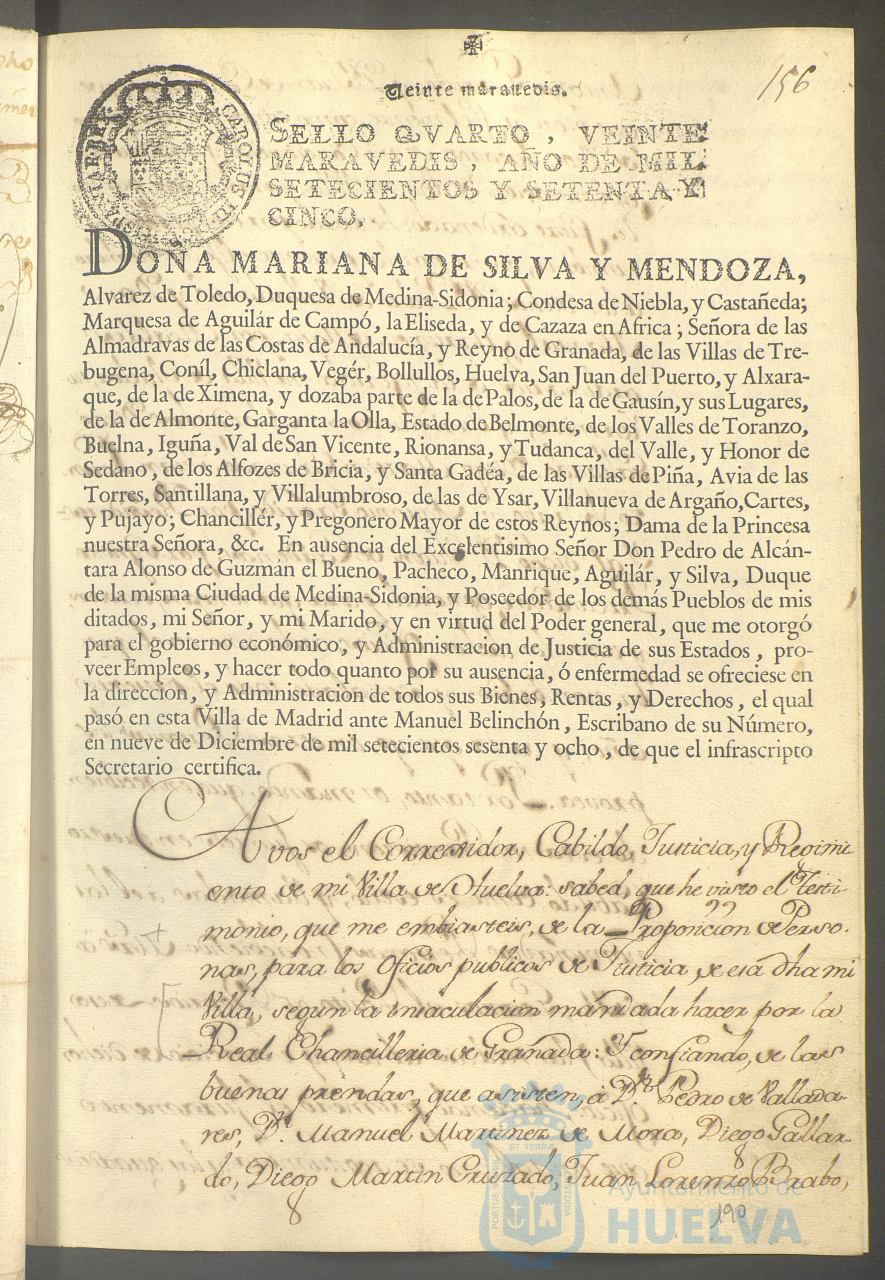 156
Veinte maravedis.
CAROLUS III D G HISPANIAR REX
SELLO QVARTO, VEINTE
MARAVEDIS, AÑO DE MIL
SETECIENTOS Y SETENTA Y
CINCO.
DOÑA MARIANA DE SILVA Y MENDOZA,
Alvarez de Toledo, Duquesa de Medina-Sidonia; Condesa de Niebla, y Castañeda;
Marquesa de Aguilár de Campó, la Eliseda, y de Cazaza en Africa; Señora de las
Almadravas de las Costas de Andalucía, y Reyno de Granada, de las Villas de Tre-
bugena, Coníl, Chiclana, Vegér, Bollullos, Huelva, San Juan del Puerto, y Alxara-
que, de la de Ximena, y dozaba parte de la de Palos, de la de Gausín, y sus Lugares,
de la de Almonte, Garganta la Olla, Estado de Belmonte, de los Valles de Toranzo,
Buelna, Iguña, Val de San Vicente, Rionansa, y Tudanca, del Valle, y Honor de
Sedano, de los Alfozes de Bricia, y Santa Gadéa, de las Villas de Piña, Avia de las
Torres, Santillana, y Villalumbroso, de las de Ysar, Villanueva de Argaño, Cartes,
y Pujayo; Chancillér, y Pregonero Mayor de estos Reynos; Dama de la Princesa
nuestra Señora, &c. En ausencia del Excelentisimo Señor Don Pedro de Alcán-
tara Alonso de Guzmán el Bueno, Pacheco, Manrique, Aguilár, y Silva, Duque
de la misma Ciudad de Medina-Sidonia, y Poseedor de los demás Pueblos de mis
ditados, mi Señor, y mi Marido, y en virtud del Poder general, que me otorgó
para el gobierno económico, y Administracion de Justicia de sus Estados, pro-
veer Empleos, y hacer todo quanto por su ausencia, ó enfermedad se ofreciese en
la direccion, y Administracion de todos sus Bienes, Rentas, y Derechos, el qual
pasó en esta Villa de Madrid ante Manuel Belinchón, Escribano de su Número,
en nueve de Diciembre de mil setecientos sesenta y ocho, de que el infrascripto
Secretario certifica.
A vos el Correxidor, Cabildo, Justicia, y Regimi
ento de mi Villa de Huelva: sabed, que he visto el Testi
monio, que me embiasteis, de la Proposicion de Perso-
nas, para los oficios publicos de Justicia, de esa dha mi
Villa, segun la insaculacion mandada hacer por la
Real Chancilleria de Granada: Y confiando, de las
buenas prendas, que asisten, à Dn. Pedro de Vallada-
res, Dn. Manuel Martinez de Mora, Diego Gallar-
do, Diego Martin Cruzado, Juan Lorenzo Brabo,
190
PORTUS MARIS ET TERRAE CUSTODIA
Ayuntamiento de
HUELVA